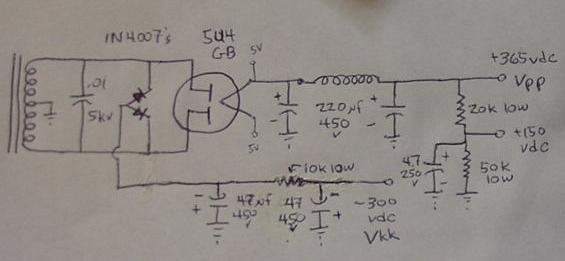 1N4007's
5U4
GB
5V
+365vdc
Vpp
.01
5kv
220µf
450
V
20k 10w
+150
vdc
5V
10k 10w
47
250
V
50k
10w
47µf
450
V
47
450
V
~300
vdc
Vkk